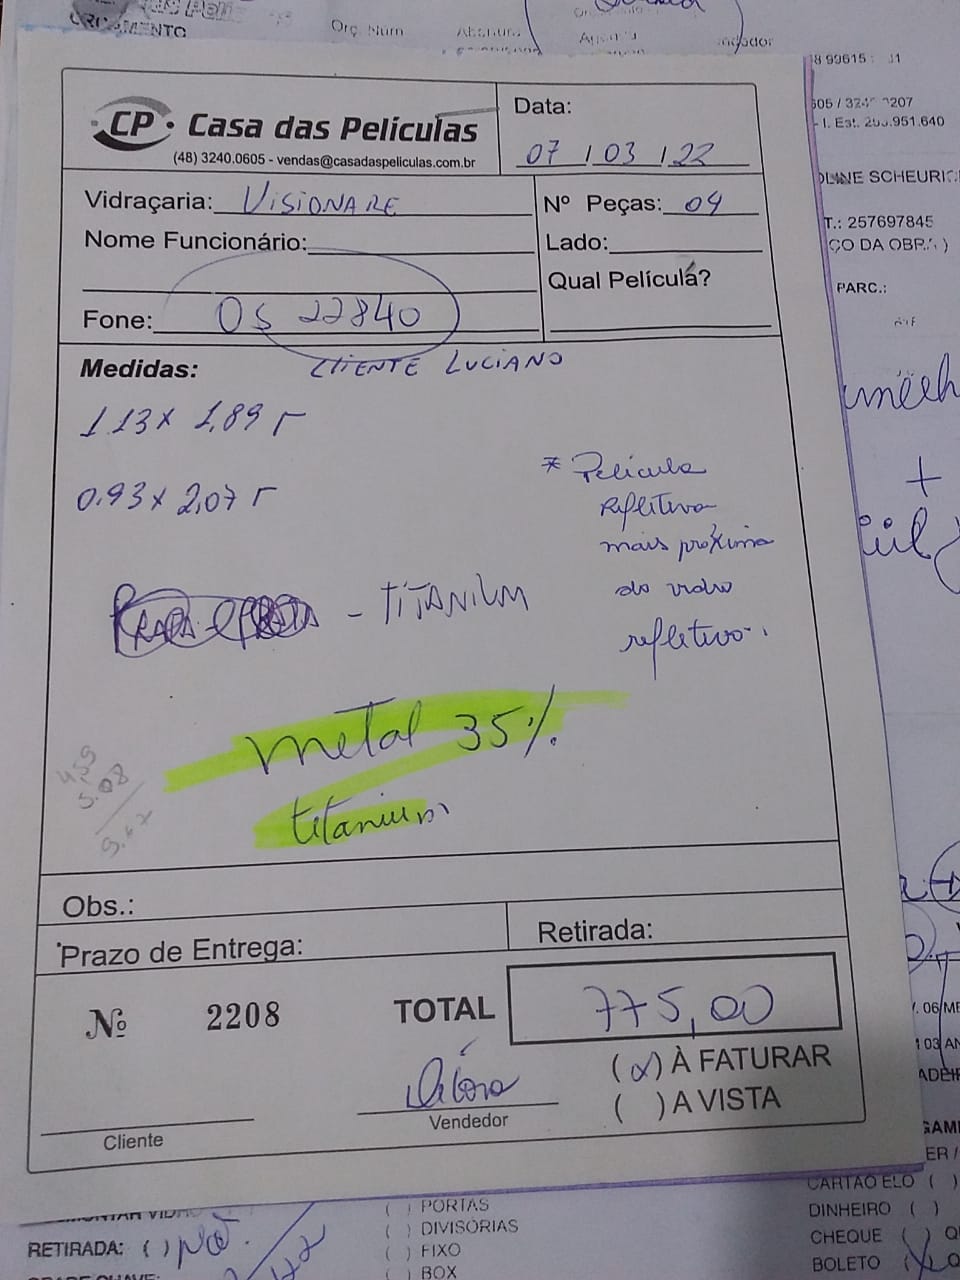 ORÇAMENTO
Orç. Num
CP Casa das Películas
(48) 3240.0605 - vendas@casadaspeliculas.com.br
Data:
07 / 03 / 22
Vidraçaria: VISIONARE
Nº Peças: 04
Nome Funcionário:
Lado:
Qual Película?
Fone: OS 22840
Medidas:
CLIENTE LUCIANO
1.13 x 1,89 r
0.93 x 2,07 r
* Película
refletiva
mais próxima
do vidro
refletivo.
- TITANIUM
metal 35%
titanium
5.08
Obs.:
Prazo de Entrega:
Retirada:
Nº 2208
TOTAL 775,00
(x) À FATURAR
( ) A VISTA
Débora
Vendedor
Cliente
I. Est.
951.640
T.: 257697845
ÇO DA OBRA )
PARC.:
+
RETIRADA: ( )
( ) PORTAS
( ) DIVISÓRIAS
( ) FIXO
( ) BOX
CARTAO ELO ( )
DINHEIRO ( )
CHEQUE ( )
BOLETO (X)